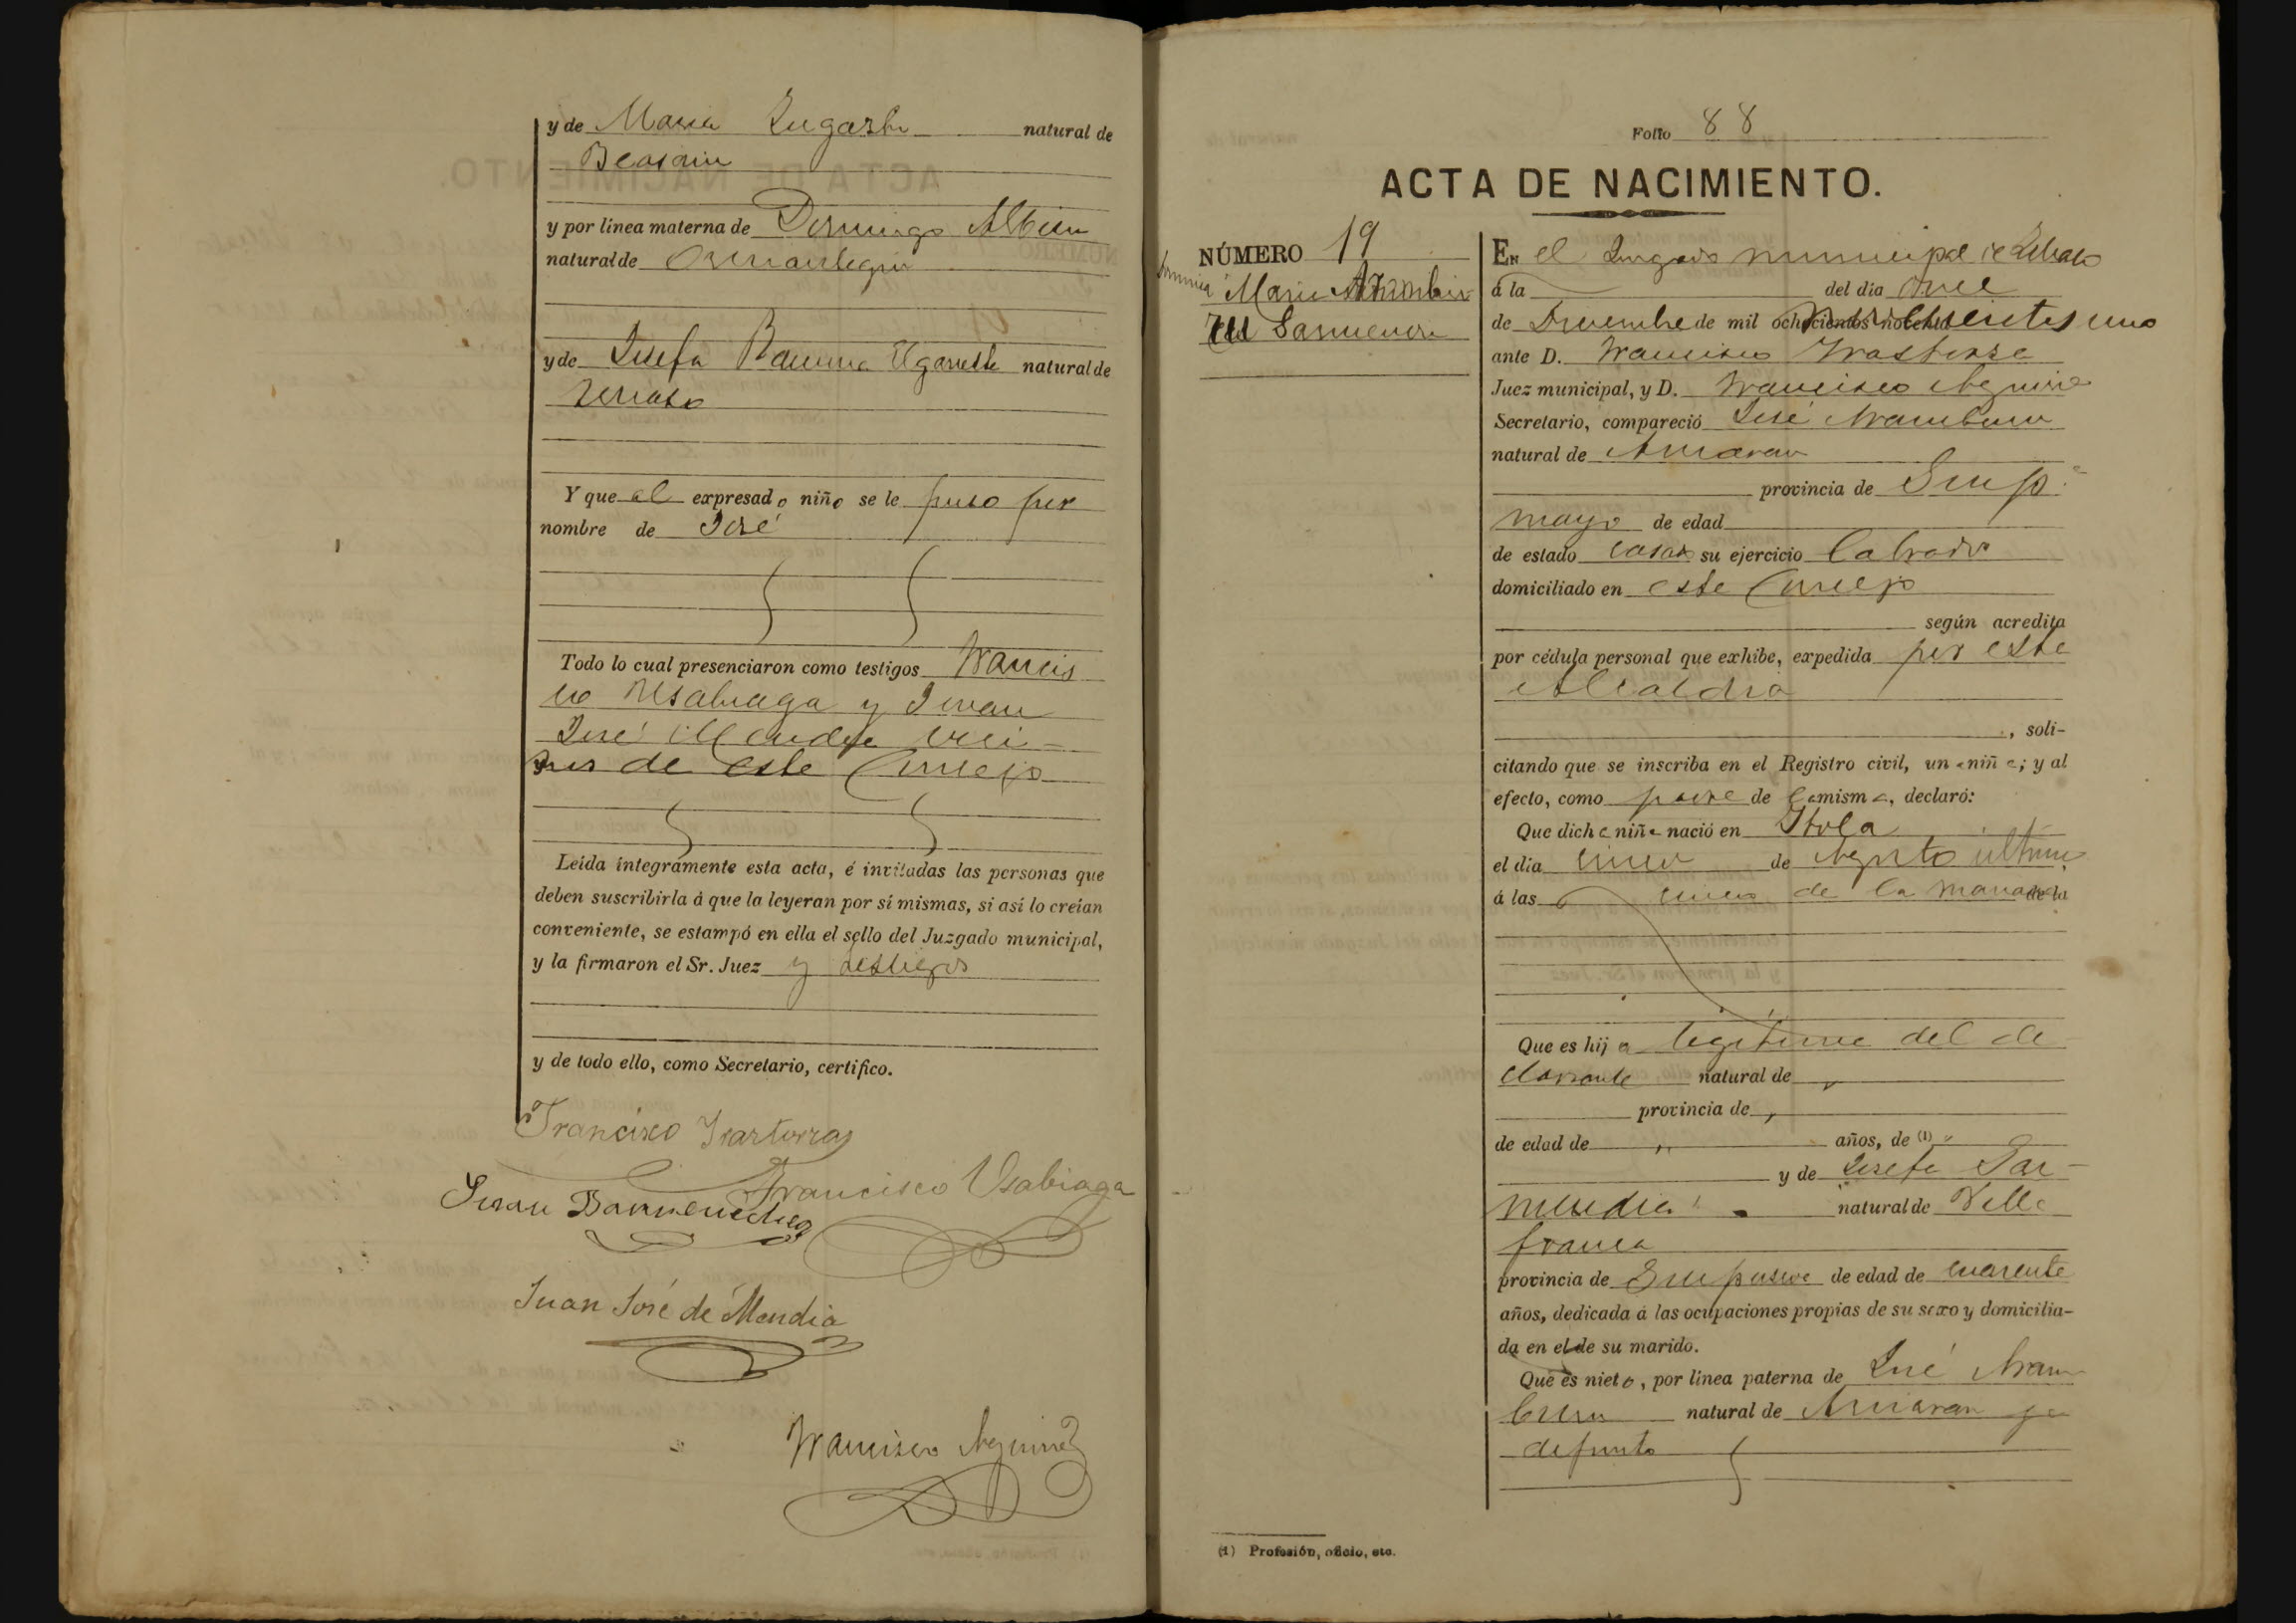 y de Maria natural de
Beasain
y por línea materna de Domingo Albisu
natural de Ormaiztegui
y de Josefa Ramona natural de
Y que el expresado niño se le puso por
nombre de José
Todo lo cual presenciaron como testigos Francis
co Usabiaga y Juan
José Mendia veci-
nos de este Concejo
Leída íntegramente esta acta, é invitadas las personas que
deben suscribirla á que la leyeran por sí mismas, si así lo creían
conveniente, se estampó en ella el sello del Juzgado municipal,
y la firmaron el Sr. Juez y testigos
y de todo ello, como Secretario, certifico.
Francisco Irastorza
Francisco Usabiaga
Juan
Juan José de Mendia
Francisco Aguirre
Folio 88
ACTA DE NACIMIENTO.
NÚMERO 19
Maria
En el Juzgado municipal de
á la del dia once
de de mil ochocientos noventa uno
ante D. Francisco Irastorza
Juez municipal, y D. Francisco Aguirre
Secretario, compareció José Aramburu
natural de
provincia de Guip.ª
mayor de edad
de estado casado su ejercicio labrador
domiciliado en este Concejo
según acredita
por cédula personal que exhibe, expedida por esta
Alcaldia
, soli-
citando que se inscriba en el Registro civil, una niña; y al
efecto, como padre de la misma, declaró:
Que dicha niña nació en
el dia cinco de Agosto último
á las cinco de la mañana de la
Que es hija legitima del de
clarante natural de
provincia de
de edad de años, de (1)
y de Josefa Gar
mendia natural de Villa
franca
provincia de Guipuscoa de edad de cuarenta
años, dedicada á las ocupaciones propias de su sexo y domicilia-
da en el de su marido.
Que es nieto, por línea paterna de José Aram
buru natural de ya
defunto
(1) Profesión, oficio, etc.